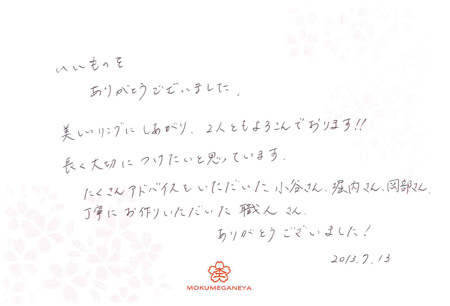 いいものを
ありがとうございました。
美しいリングにしあがり、2人ともよろこんでおります!!
長く大切につけたいと思っています。
たくさんアドバイスをいただいた小谷さん、堀内さん、岡部さん、
丁寧にお作りいただいた職人さん、
ありがとうございました!
2013.7.13
MOKUMEGANEYA